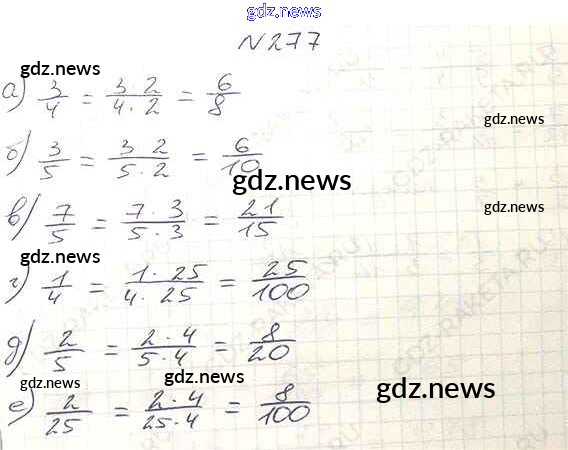 gdz.news
N 277
gdz.news
а) 3/4 = 3 2/4 · 2 = 6/8
gdz.news
б) 3/5 = 3 2/5 · 2 = 6/10
gdz.news
в) 7/5 = 7 · 3/5 · 3 = 21/15
gdz.news
gdz.news
г) 1/4 = 1 · 25/4 · 25 = 25/100
д) 2/5 = 2 · 4/5 · 4 = 8/20
gdz.news gdz.news gdz.news
е) 2/25 = 2 · 4/25 · 4 = 8/100